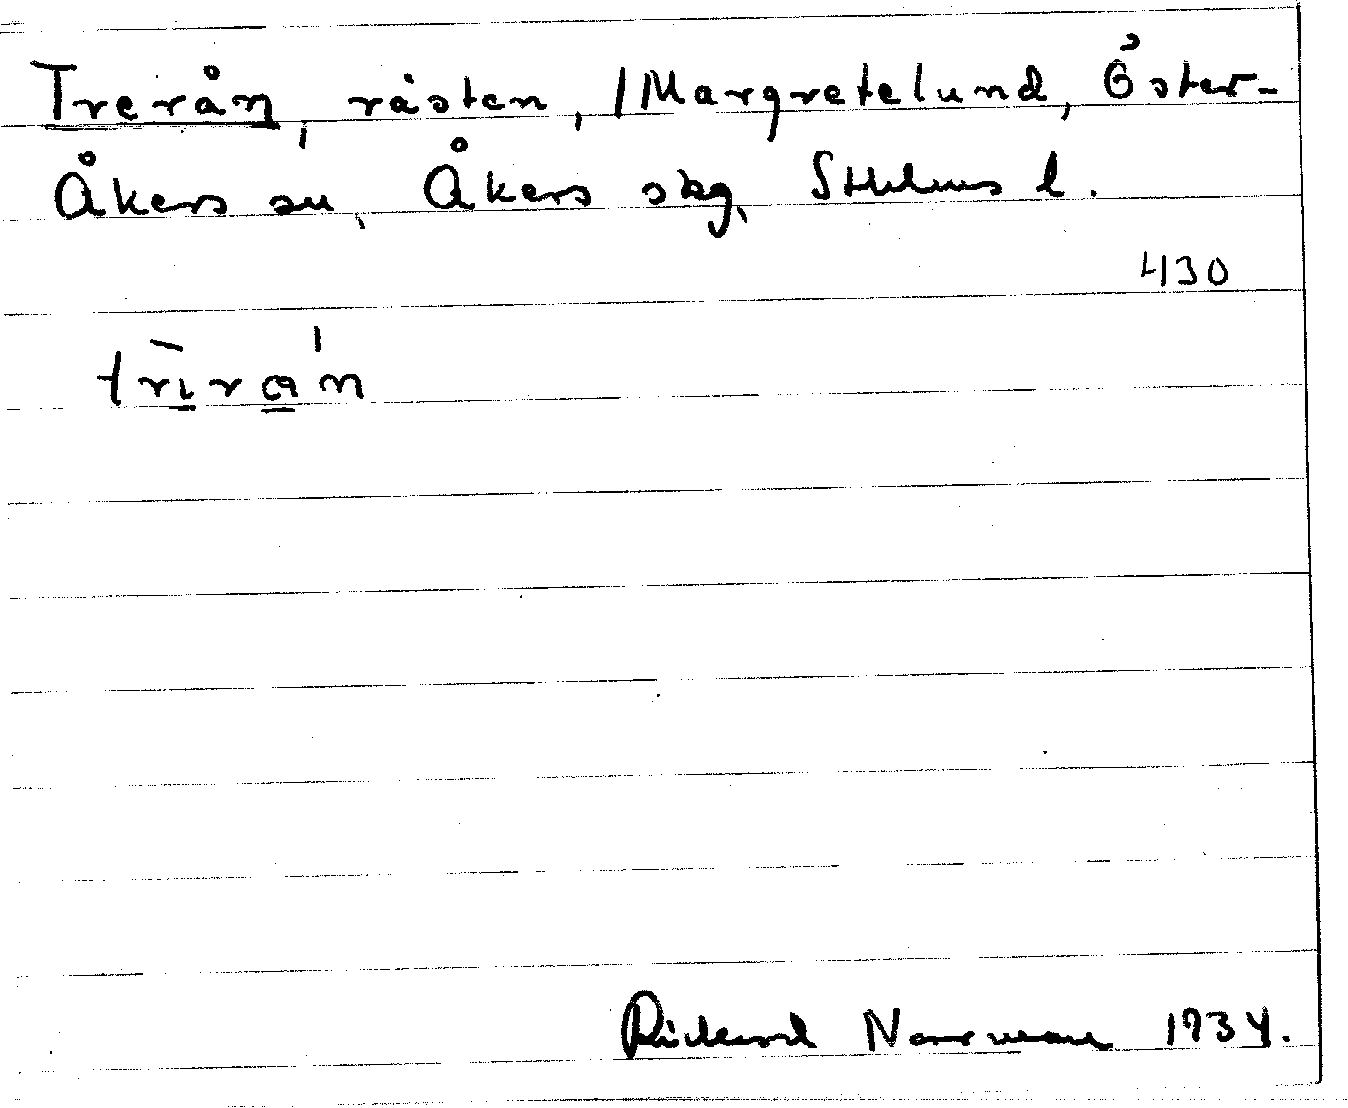 Trerån, råsten, /Margretelund, Öster-
Åkers sn, Åkers skg, Sthlms l.
430
trìrá̱n
Rickard Norrman 1934.